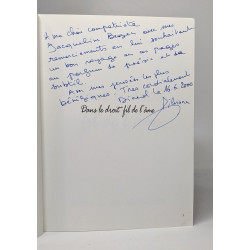 A ma chère compatriote
Jacqueline avec mes
remerciements en lui souhaitant
un bon voyage en ces pages
au parfum de poésie et de
subtil
Avec mes pensées les plus
Très cordialement
Dinard le 16.6.2000
Dans le droit fil de l'âme